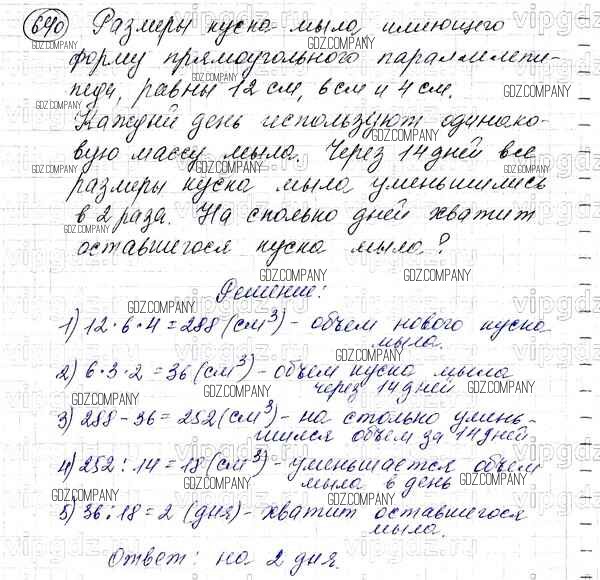 640 Размеры куска мыла, имеющего
форму прямоугольного параллелепи-
педа, равны 12 см, 6 см и 4 см.
Каждый день используют одинако-
вую массу мыла. Через 14 дней все
размеры куска мыла уменьшились
в 2 раза. На сколько дней хватит
оставшегося куска мыла?
Решение:
1) 12·6·4=288 (см³) - объем нового куска
мыла.
2) 6·3·2=36 (см³) - объем куска мыла
через 14 дней
3) 288-36=252 (см³) - на столько умень-
шился объем за 14 дней
4) 252:14=18 (см³) - уменьшается объем
мыла в день
5) 36:18=2 (дня) - хватит оставшегося
мыла.
Ответ: на 2 дня.
GDZ.COMPANY
vipgdz.ru